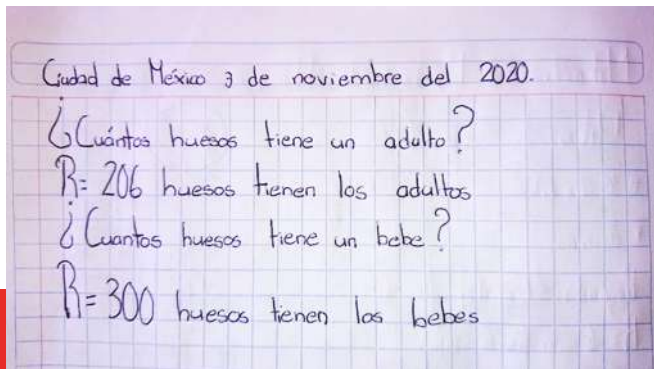 Ciudad de México 3 de noviembre del 2020.
¿Cuántos huesos tiene un adulto?
R= 206 huesos tienen los adultos
¿Cuantos huesos tiene un bebe?
R= 300 huesos tienen los bebes